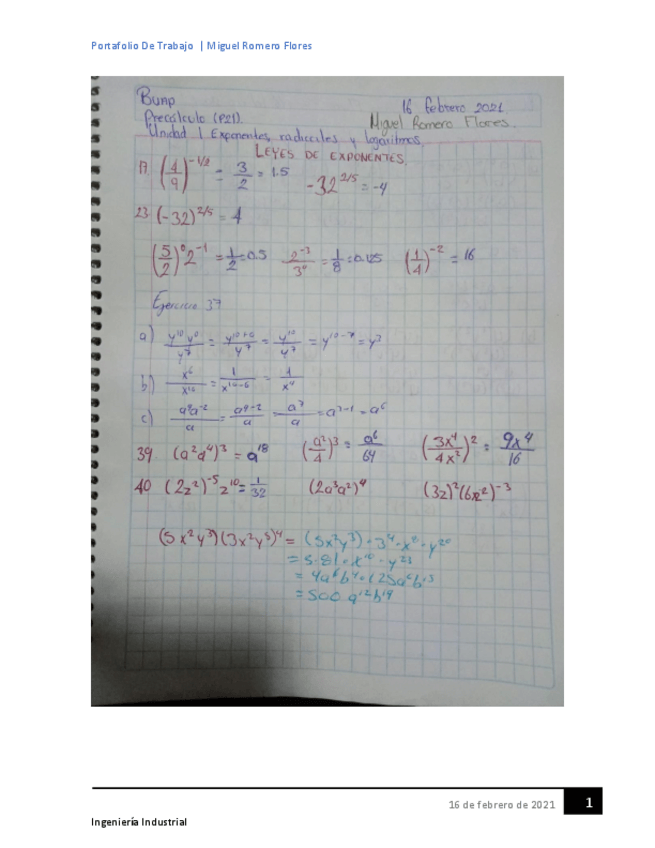 Portafolio De Trabajo | Miguel Romero Flores
Buap 16 Febrero 2021
Precálculo (P21). Miguel Romero Flores.
Unidad 1 Exponentes, radicales y logaritmos.
LEYES DE EXPONENTES.
17. (4/9)^-1/2 = 3/2 = 1.5 -32^2/5 = -4
23. (-32)^2/5 = 4
(5/2)^0 2^-1 = 1/2 = 0.5 2^-3/3^0 = 1/8 = 0.125 (1/4)^-2 = 16
Ejercicio 37
a) y^10 y^0/y^7 = y^10+0/y^7 = y^10/y^7 = y^10-7 = y^3
b) x^6/x^10 = 1/x^10-6 = 1/x^4
c) a^9 a^-2/a = a^9-2/a = a^7/a = a^7-1 = a^6
39. (a^2 a^4)^3 = a^18 (a^2/4)^3 = a^6/64 (3x^4/4x^2)^2 = 9x^4/16
40 (2z^2)^-5 z^10 = 1/32 (2a^3a^2)^4 (3z)^2(6z^2)^-3
(5x^2y^3)(3x^2y^5)^4 = (5x^2y^3) · 3^4 · x^8 · y^20
= 5·81 · x^10 · y^23
= 4a^6b^4 · 125a^6b^15
= 500 a^12 b^19
16 de febrero de 2021 1
Ingeniería Industrial